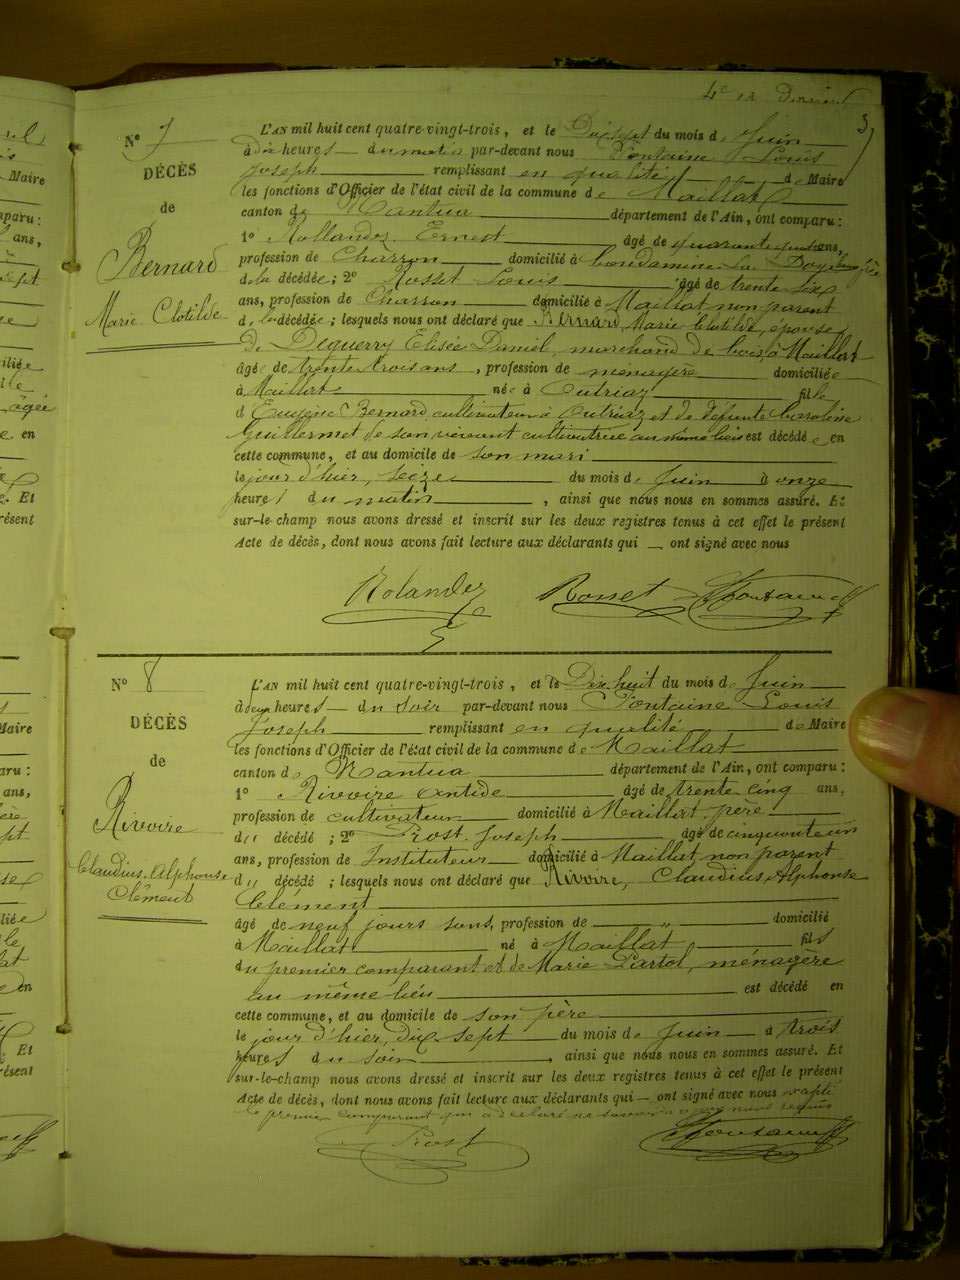 4e et dernier
3
N° 7
DÉCÈS
de
Bernard
Marie Clotilde
L'AN mil huit cent quatre-vingt-trois, et le Dix sept du mois de Juin
à dix heures du matin par-devant nous Fontaine Louis
Joseph remplissant en qualité de Maire
les fonctions d'Officier de l'état civil de la commune de Maillat
canton de Nantua département de l'Ain, ont comparu :
1° Rollandez Ernest âgé de quarante ans,
profession de Charron domicilié à Condamine la Doye
de la décédée ; 2° Rosset Louis âgé de trente six
ans, profession de Charron domicilié à Maillat non parent
de la décédée ; lesquels nous ont déclaré que Bernard Marie Clotilde, épouse
de Deguerry Elisée Daniel, marchand de bois à Maillat
âgée de trente trois ans, profession de ménagère domiciliée
à Maillat née à Outriaz fille
d'Eugène Bernard cultivateur à Outriaz et de défunte Caroline
Guillermet de son vivant cultivatrice au même lieu est décédée en
cette commune, et au domicile de son mari
le jour d'hier, seize du mois de Juin à onze
heures du matin, ainsi que nous nous en sommes assuré. Et
sur-le-champ nous avons dressé et inscrit sur les deux registres tenus à cet effet le présent
Acte de décès, dont nous avons fait lecture aux déclarants qui — ont signé avec nous
Rolandez Rosset Fontaine
N° 8
DÉCÈS
de
Rivoire
Claudius Alphonse
Clément
L'AN mil huit cent quatre-vingt-trois, et le Dix huit du mois de Juin
à deux heures du soir par-devant nous Fontaine Louis
Joseph remplissant en qualité de Maire
les fonctions d'Officier de l'état civil de la commune de Maillat
canton de Nantua département de l'Ain, ont comparu :
1° Rivoire Antide âgé de trente cinq ans,
profession de cultivateur domicilié à Maillat, père
du décédé ; 2° Prost Joseph âgé de cinquante un
ans, profession de Instituteur domicilié à Maillat non parent
du décédé ; lesquels nous ont déclaré que Rivoire, Claudius Alphonse
Clément
âgé de neuf jours sans profession de „ domicilié
à Maillat né à Maillat fils
du premier comparant et de Marie Partol, ménagère
au même lieu est décédé en
cette commune, et au domicile de son père
le jour d'hier, dix sept du mois de Juin à trois
heures du soir, ainsi que nous nous en sommes assuré. Et
sur-le-champ nous avons dressé et inscrit sur les deux registres tenus à cet effet le présent
Acte de décès, dont nous avons fait lecture aux déclarants qui — ont signé avec nous excepté
le premier comparant qui a déclaré ne savoir de ce requis
Prost Fontaine